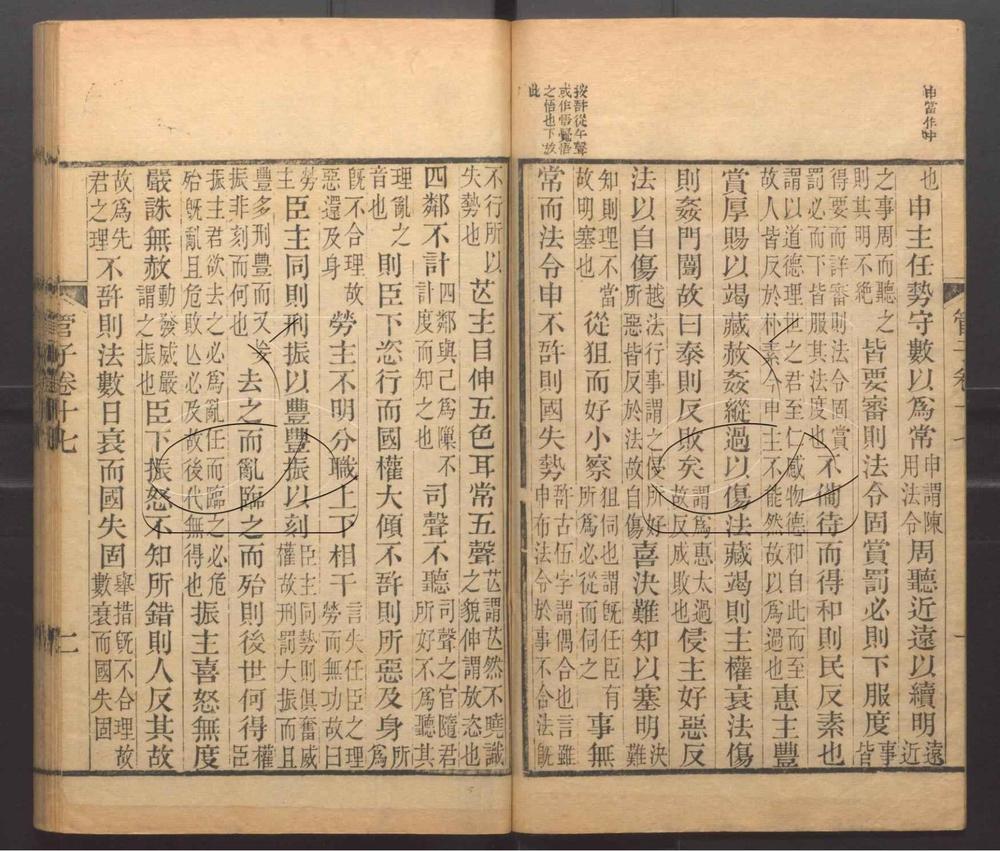 申當作中
按許從午聲
或作啎覺悟
之悟也下放
此
也申主任勢守數以爲常申謂陳用法令周聽近遠以續明遠近
之事周而聽之則其明不絶皆要審則法令固賞罰必則下服度事皆
得要而詳審則法令固賞罰必而下皆服其法度也不備待而得和則民反素也
謂以道德理世之君至仁感物德和自此而至故人皆反於朴素今申主不能然故以爲過也惠主豐
賞厚賜以竭藏赦姦縱過以傷法藏竭則主權衰法傷
則姦門闓故曰泰則反敗矣謂爲惠太過故反成敗也侵主好惡反
法以自傷越法行事謂之侵所好所惡皆反於法故自傷喜決難知以塞明決難
知則理不當故明塞也從狙而好小察狙伺也謂既任臣有所爲必從而伺之事無
常而法令申不許則國失勢許古伍字謂偶合也言雖申布法令於事不合法既
不行所以失勢也芒主目伸五色耳常五聲芒謂芒然不曉識之貌伸謂放恣也
四鄰不計四鄰與己爲隟不計度而知之也司聲不聽司聲之官隨君所好不爲聽其
理亂之音也則臣下恣行而國權大傾不許則所惡及身所爲
既不合理故惡還及身勞主不明分職上下相干言失任臣之理勞而無功故曰
勞主臣主同則刑振以豐豐振以刻臣主同勢則俱奮威權故刑罰大振而且
豐多刑豐而又振非刻而何也去之而亂臨之而殆則後世何得權臣
振主君欲去之必爲亂任而臨之必危殆既亂且危敗亾必及故後代無得也振主喜怒無度
嚴誅無赦動發威嚴謂之振也臣下振怒不知所錯則人反其故
故爲先君之理不許則法數日衰而國失固舉措既不合理故數衰而國失固
管子卷十七
二